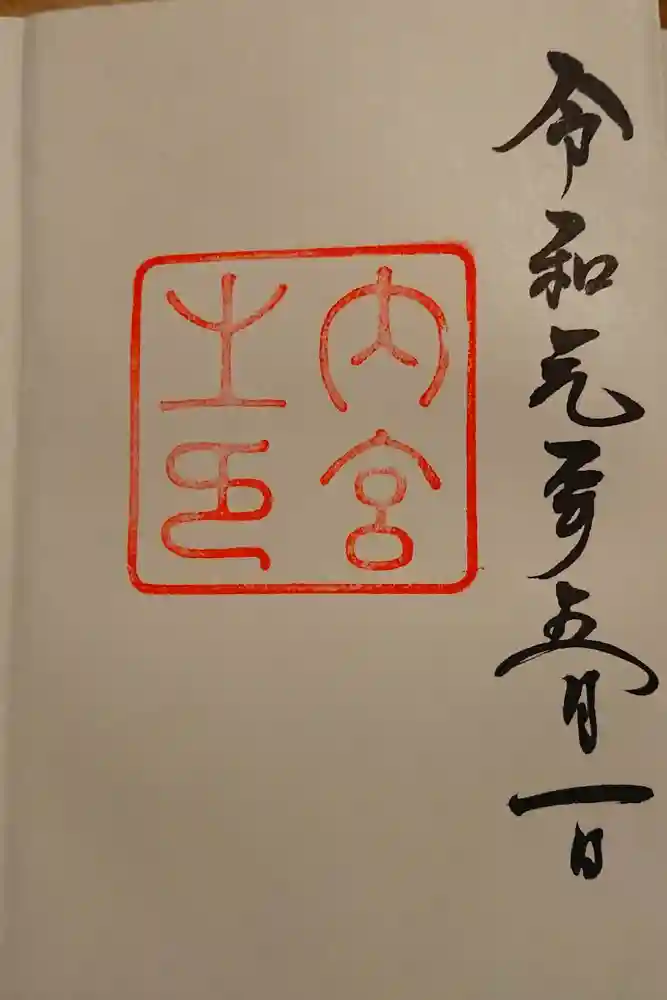 令和元年五月一日
内宮之印